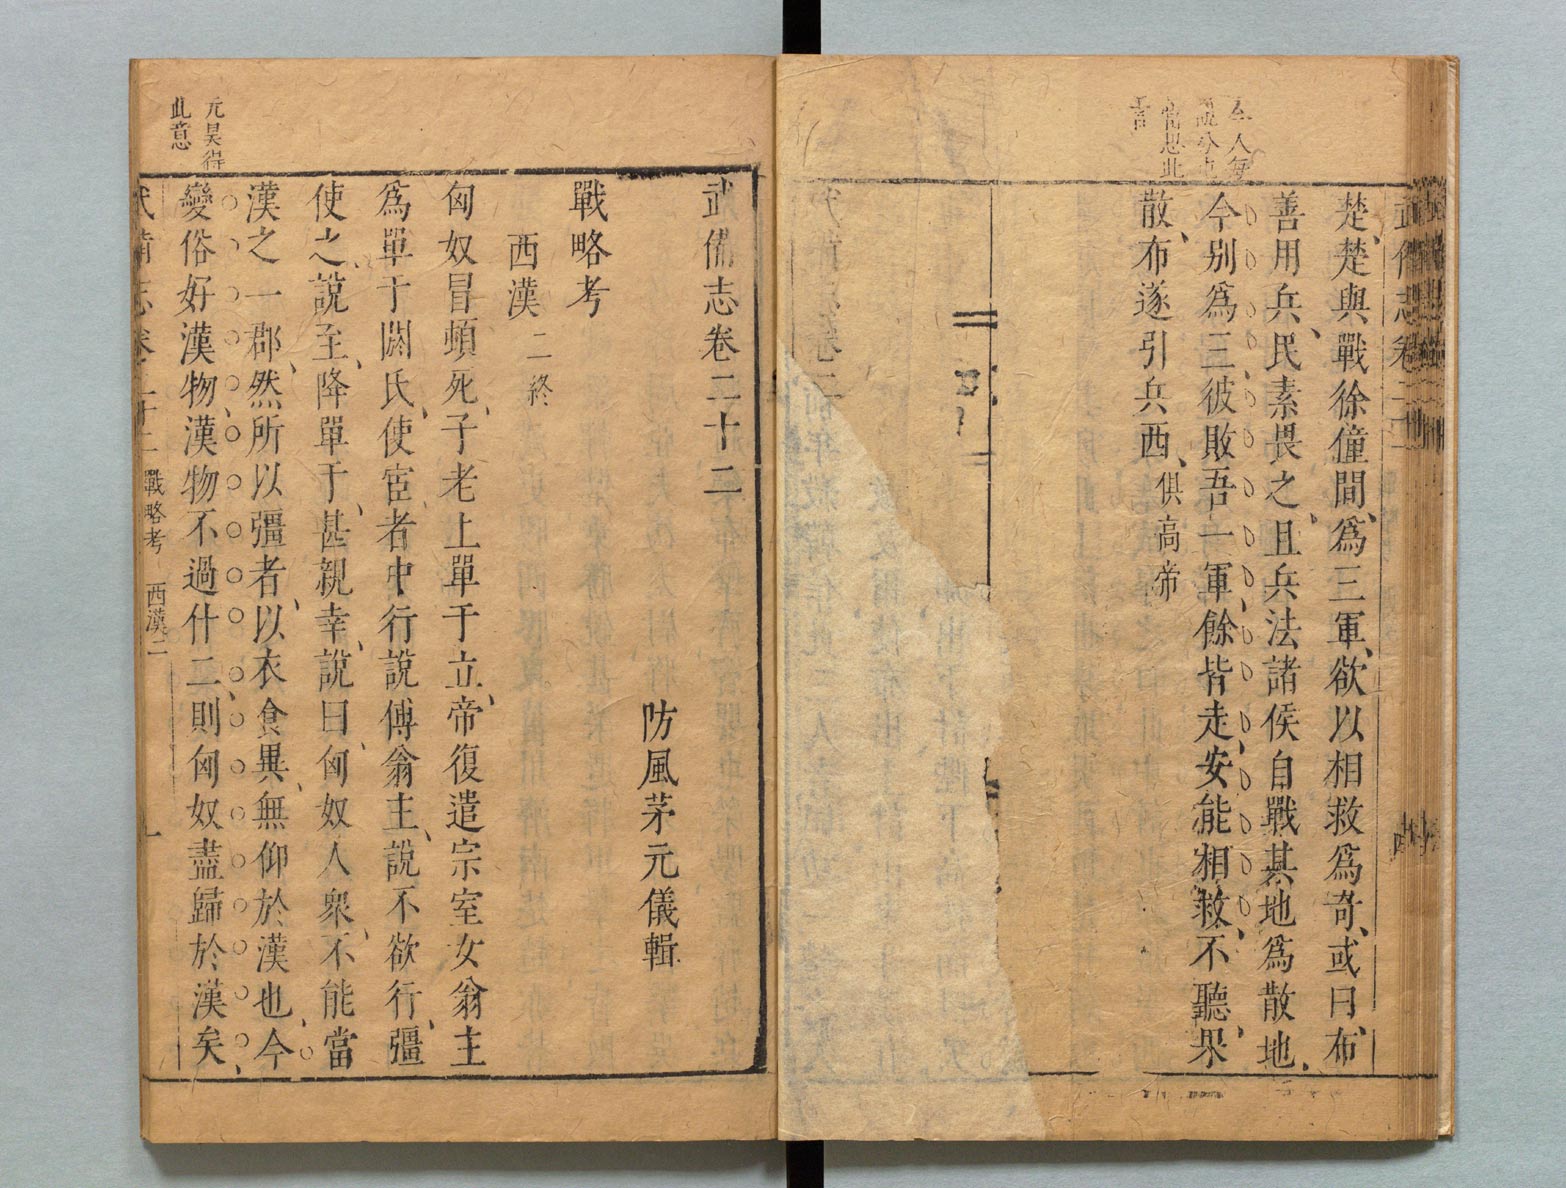 楚楚與戰徐僮間爲三軍欲以相救爲奇或曰布
善用兵民素畏之且兵法諸侯自戰其地爲散地
今別爲三彼敗吾一軍餘皆走安能相救不聽果
散布遂引兵西俱高帝
武備志卷二十二
防風茅元儀輯
戰略考
西漢二終
匈奴冒頓死子老上單于立帝復遣宗室女翁主
爲單于閼氏使宦者中行說傅翁主說不欲行彊
使之說至降單于甚親幸說曰匈奴人衆不能當
漢之一郡然所以彊者以衣食異無仰於漢也今
元昊得
此意
變俗好漢物漢物不過什二則匈奴盡歸於漢矣
武備志卷二十二 戰略考 西漢二 一